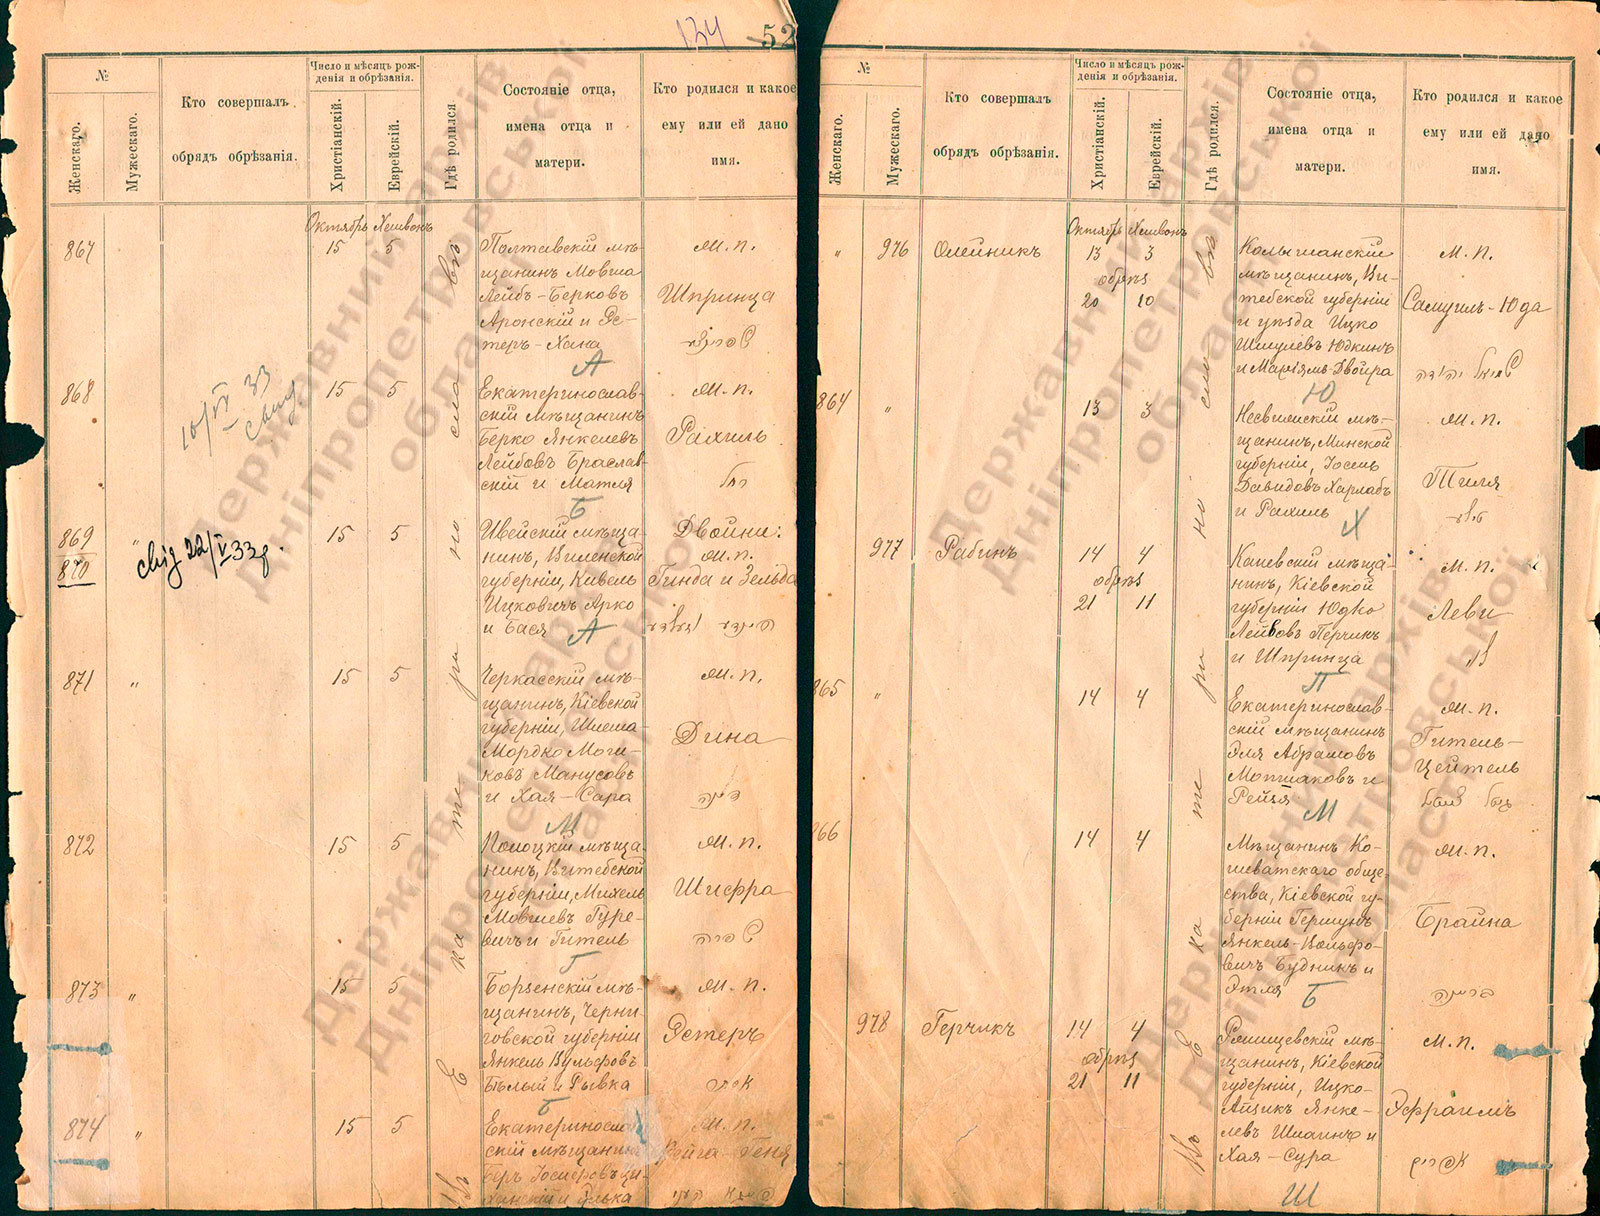 134 52
№
Женскаго.
Мужескаго.
Кто совершалъ
обрядъ обрѣзанія.
Число и мѣсяцъ рож-
денія и обрѣзанія.
Христіанскій.
Еврейскій.
Гдѣ родился
Состояніе отца,
имена отца и
матери.
Кто родился и какое
ему или ей дано
имя.
Октябрь Хешвонъ
въ Екатеринославѣ
867 15 5
Полтавскій мѣ-
щанинъ Мовша
Лейбъ-Берковъ
Аронскій и Эс-
теръ-Хана
А
М. п.
Шпринца
שפרינצע
868 15 5
10/VI 33
Екатеринослав-
скій мѣщанинъ
Берко Янкелевъ
Лейбовъ Браслав-
скій и Матля
Б
М. п.
Рахиль
רחל
869 " 15 5
870
свід 22/V 33р.
Ивейскій мѣща-
нинъ, Виленской
губерніи, Кивель
Ицковичъ Арко
и Бася
А
Двойни:
М. п.
Гинда и Зельда
הינדע וזעלדע
871 " 15 5
Черкасскій мѣ-
щанинъ, Кіевской
губерніи, Шлема
Мордко Моги-
ковъ Манусовъ
и Хая-Сара
М
М. п.
Дина
דינה
872 15 5
Полоцкій мѣща-
нинъ, Витебской
губерніи, Михель
Мовшевъ Гуре-
вичъ и Гитель
Г
М. п.
Шифра
שפרה
873 " 15 5
Борзенскій мѣ-
щанинъ, Черни-
говской губерніи
Янкель Вульфовъ
Бѣлый и Рывка
Б
М. п.
Эстеръ
אסתר
874 " 15 5
Екатеринослав
скій мѣщанинъ
М. п.
Фейга-Геня
№
Женскаго.
Мужескаго.
Кто совершалъ
обрядъ обрѣзанія.
Число и мѣсяцъ рож-
денія и обрѣзанія.
Христіанскій.
Еврейскій.
Гдѣ родился.
Состояніе отца,
имена отца и
матери.
Кто родился и какое
ему или ей дано
имя.
Октябрь Хешвонъ
въ Екатеринославѣ
" 976 Олейникъ 13 3
обрѣз
20 10
Колышанскій
мѣщанинъ, Ви-
тебской губерніи
и уѣзда Ицко
Шмулевъ Юдкинъ
и Маріямъ-Двойра
Ю
М. п.
Самуилъ-Юда
שמואל יהודה
864 " 13 3
Несвижскій мѣ-
щанинъ, Минской
губерніи, Іосель
Давидовъ Харлабъ
и Рахиль
Х
М. п.
Тиля
טילע
977 Рабинъ 14 4
обрѣз
21 11
Каневскій мѣща-
нинъ, Кіевской
губерніи Юдко
Лейбовъ Перчикъ
и Шпринца
П
М. п.
Леви
לוי
865 " 14 4
Екатеринослав-
скій мѣщанинъ
Эля Абрамовъ
Мотшаковъ и
Рейзя
М
М. п.
Гитель-
Цейтель
866 14 4
Мѣщанинъ Ко-
шеватскаго обще-
ства, Кіевской гу-
берніи Гершунъ
Янкель-Вольфо-
вичъ Будникъ и
Этля
Б
М. п.
Брайна
בריינה
978 Герчикъ 14 4
обрѣз
21 11
мѣ-
щанинъ, Кіевской
губерніи, Ицко-
Айзикъ Янке-
левъ и
Хая-Сура
Ш
М. п.
Эфраимъ
אפרים
Державний архів
Дніпропетровської
області